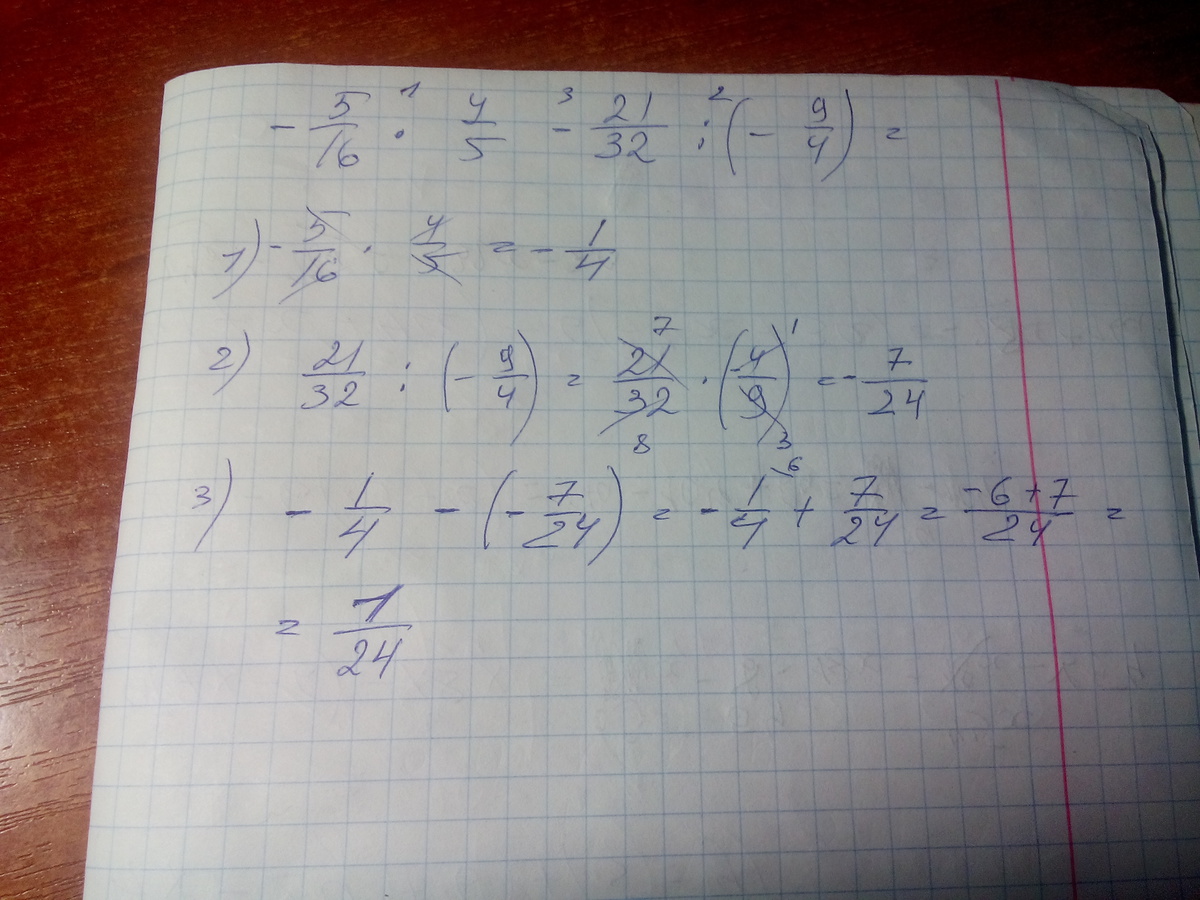 - 5/16 ·¹ 4/5 -³ 21/32 :² (- 9/4) =
1) - 5/16 · 4/5 = - 1/4
2) 21/32 : (- 9/4) = 21/32 7 8 · (-4/9) 1 3 = - 7/24
3) - 1/4 - (- 7/24) = - 1/4 6 + 7/24 = -6+7/24 =
= 1/24